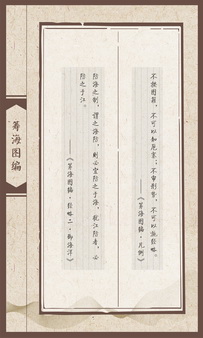 筹海图编
不按图籍，不可以知阨塞；不审形势，不可以施经略。
——《筹海图编·凡例》
防海之制，谓之海防，则必宜防之于海，犹江防者，必
防之于江。
——《筹海图编·经略二·御海洋》